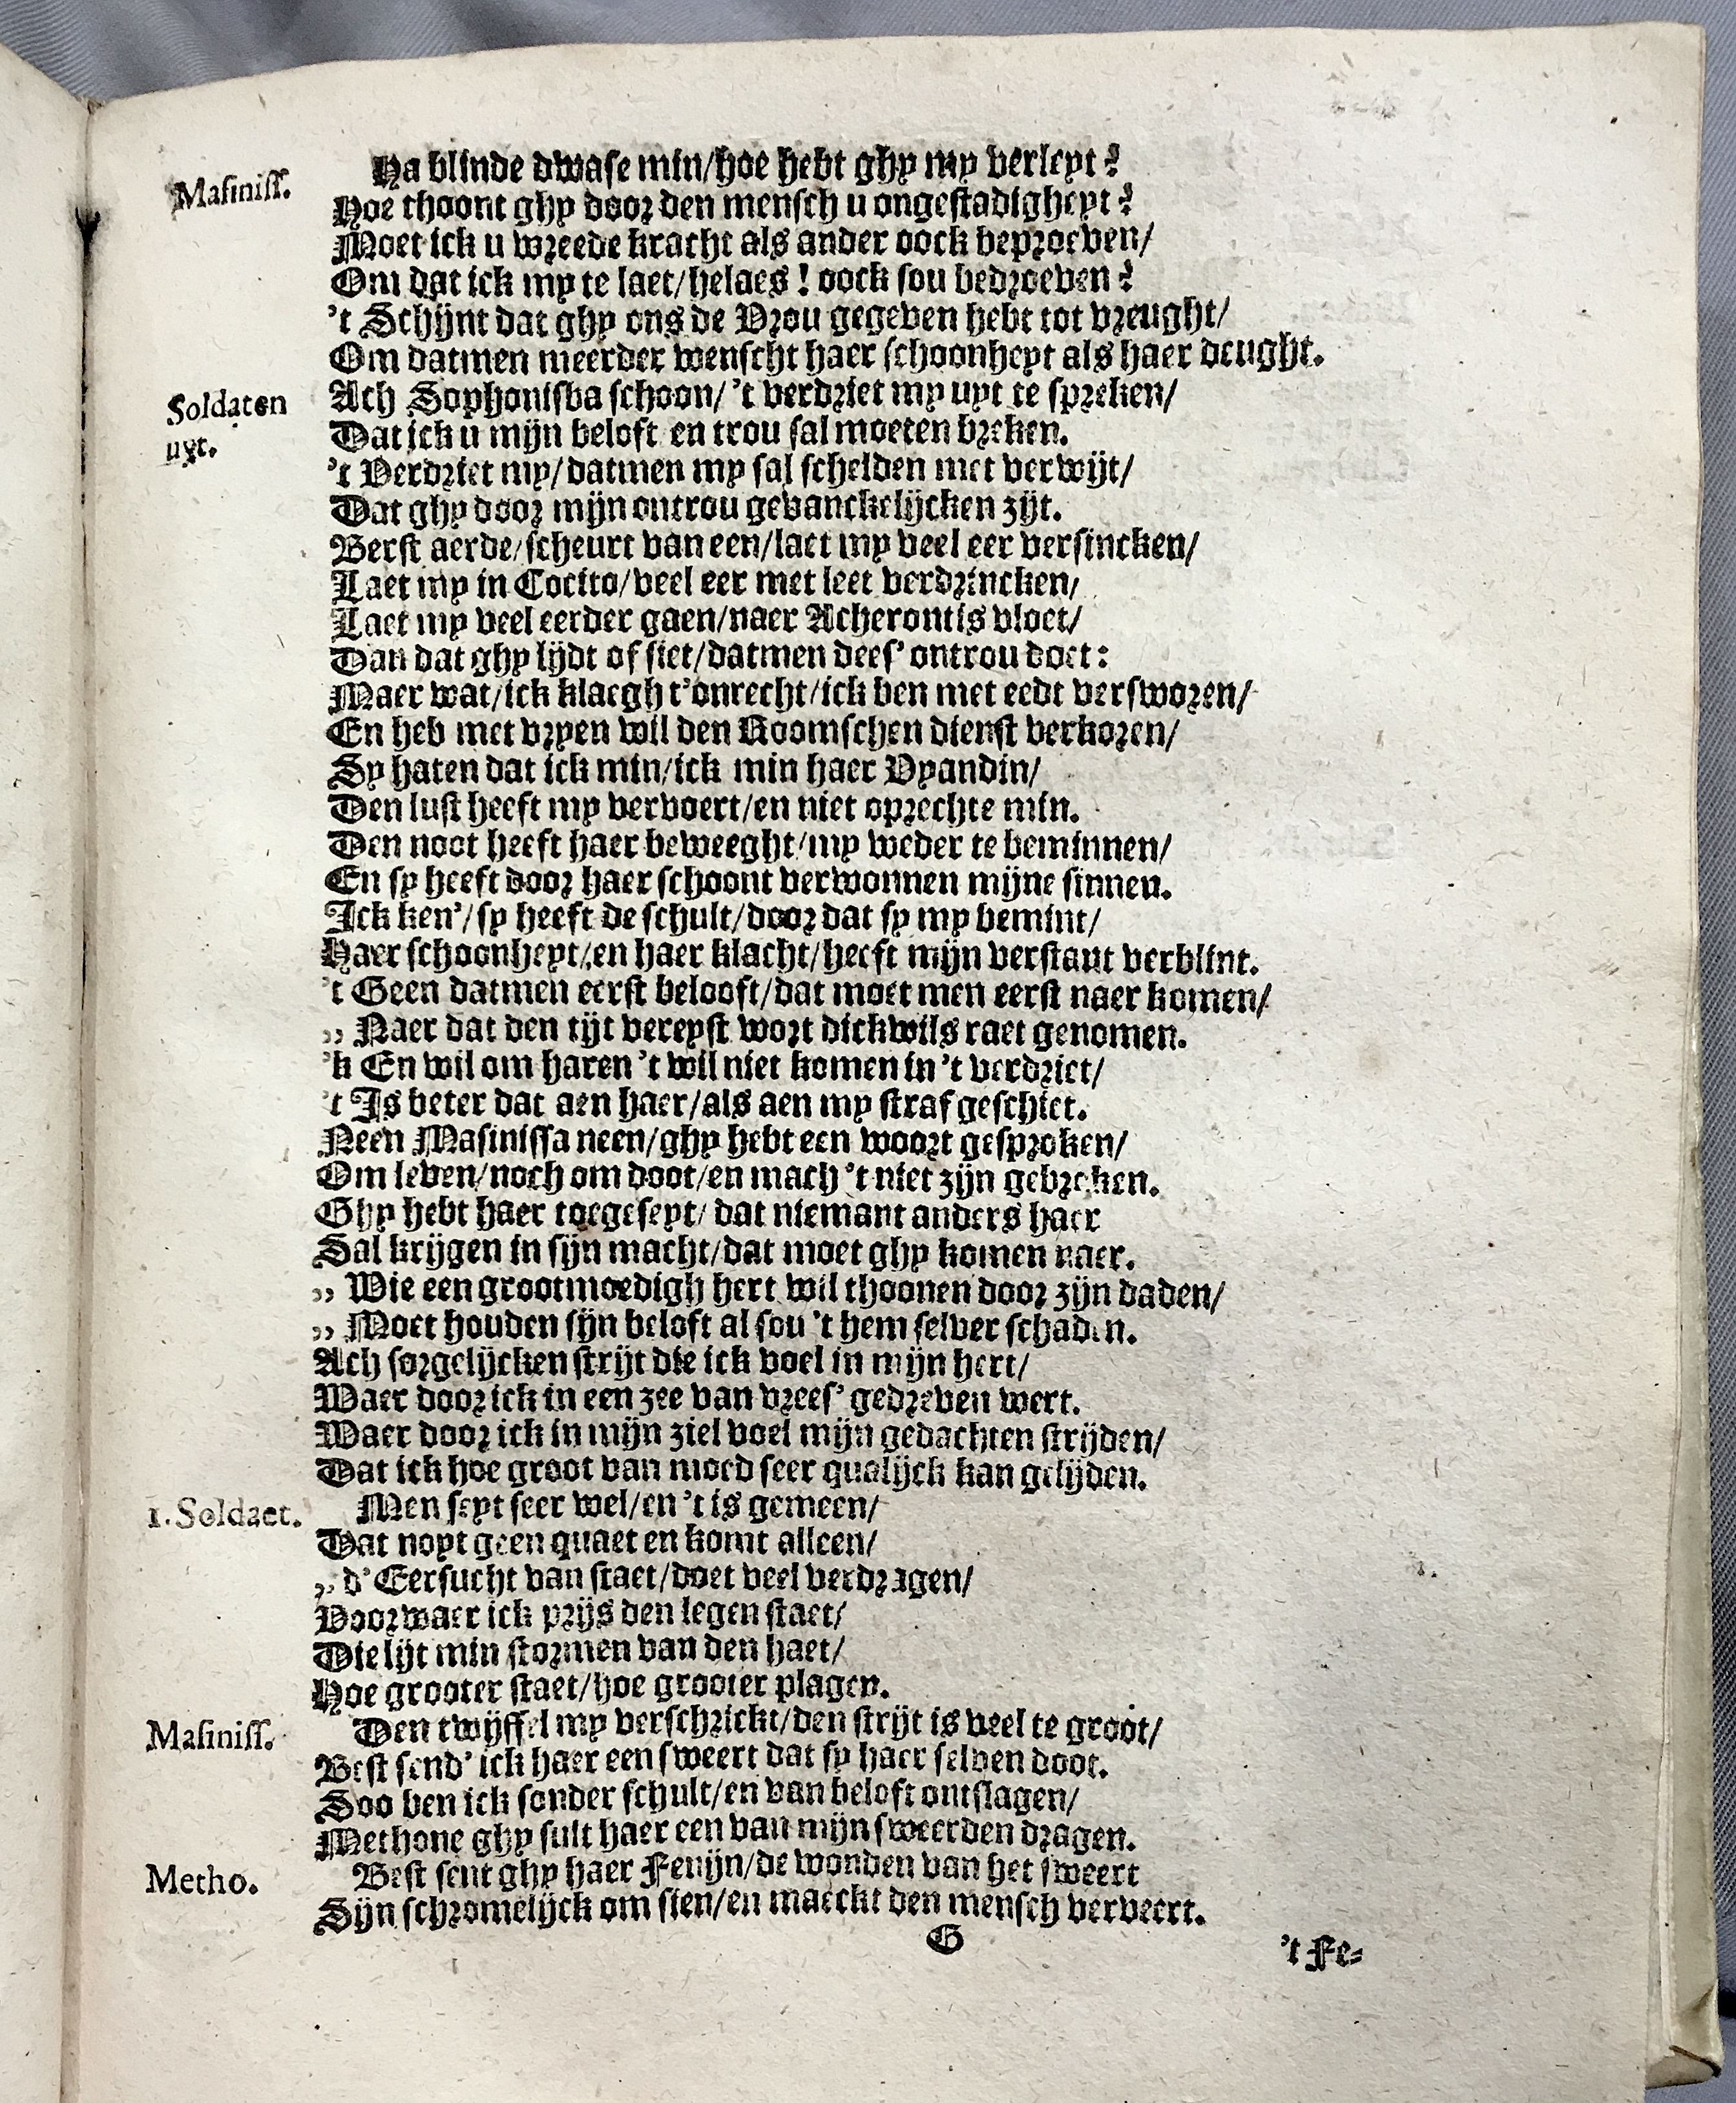 Masiniss. Ha blinde dwase min/hoe hebt ghy my verleyt?
Hoe thoont ghy door den mensch u ongestadigheyt?
Moet ick u wreede kracht als ander oock beproeven/
Om dat ick my te laet/helaes! oock sou bedroeven?
't Schijnt dat ghy ons de Vrou gegeven hebt tot vreught/
Om datmen meerder wenscht haer schoonheyt als haer deught.
Soldaten uyt. Ach Sophonisba schoon/'t verdriet my uyt te spreken/
Dat ick u mijn beloft en trou sal moeten breken.
't Verdriet my/datmen my sal schelden met verwijt/
Dat ghy door mijn ontrou gevanckelijcken zijt.
Berst aerde/scheurt van een/laet my veel eer versincken/
Laet my in Cocito/veel eer met leet verdrincken/
Laet my veel eerder gaen/naer Acherontis vloet/
Dan dat ghy lijdt of siet/datmen dees' ontrou doet:
Maer wat/ick klaegh t'onrecht/ick ben met eedt versworen/
En heb met vryen wil den Roomschen dienst verkoren/
Sy haten dat ick min/ick min haer Vyandin/
Den lust heeft my vervoert/en niet oprechte min.
Den noot heeft haer beweeght/my weder te beminnen/
En sy heeft door haer schoont verwonnen mijne sinnen.
Ick ken'/sy heeft de schult/door dat sy my bemint/
Haer schoonheyt/en haer klacht/heeft mijn verstant verblint.
't Geen datmen eerst belooft/dat moet men eerst naer komen/
,, Naer dat den tijt vereyst wort dickwils raet genomen.
'k En wil om haren 't wil niet komen in 't verdriet/
't Is beter dat aen haer/als aen my straf geschiet.
Neen Masinissa neen/ghy hebt een woort gesproken/
Om leven/noch om doot/en mach 't niet zijn gebroken.
Ghy hebt haer toegeseyt/dat niemant anders haer
Sal krijgen in sijn macht/dat moet ghy komen naer.
,, Wie een grootmoedigh hert wil thoonen door zijn daden/
,, Moet houden sijn beloft al sou 't hem selver schaden.
Ach sorgelijcken strijt die ick voel in mijn hert/
Waer door ick in een zee van vrees' gedreven wert.
Waer door ick in mijn ziel voel mijn gedachten strijden/
Dat ick hoe groot van moed seer qualijck kan gelijden.
1. Soldaet. Men seyt seer wel/en 't is gemeen/
Dat noyt geen quaet en komt alleen/
,, d'Eersucht van staet/doet veel verdragen/
Voorwaer ick prijs den legen staet/
Die lijt min stormen van den haet/
Hoe grooter staet/hoe grooter plagen.
Masiniss. Den twijffel my verschrickt/den strijt is veel te groot/
Best send' ick haer een sweert dat sy haer selven doot.
Soo ben ick sonder schult/en van beloft ontslagen/
Methone ghy sult haer een van mijn sweerden dragen.
Metho. Best sent ghy haer Fenijn/de wonden van het sweert
Sijn schromelijck om sien/en maeckt den mensch verveert.
G
't Fe-